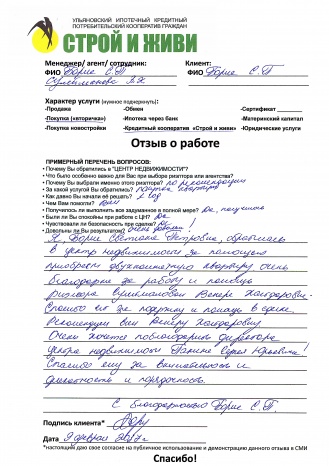 УЛЬЯНОВСКИЙ ИПОТЕЧНЫЙ КРЕДИТНЫЙ
ПОТРЕБИТЕЛЬСКИЙ КООПЕРАТИВ ГРАЖДАН
СТРОЙ И ЖИВИ
Менеджер/ агент/ сотрудник:
ФИО Борис С.П
Сулейманова В.Х
Клиент:
ФИО Борис С. П.
Характер услуги (нужное подчеркнуть):
-Продажа -Обмен -Сертификат
-Покупка («вторичка») -Ипотека через банк -Материнский капитал
-Покупка новостройки -Кредитный кооператив «Строй и живи» -Юридические услуги
Отзыв о работе
ПРИМЕРНЫЙ ПЕРЕЧЕНЬ ВОПРОСОВ:
• Почему Вы обратились в "ЦЕНТР НЕДВИЖИМОСТИ"?
• Что было особенно важно для Вас при выборе риэлтора или агентства?
• Почему Вы выбрали именно этого риэлтора? по рекомендации
• За какой услугой Вы обратились? покупка квартиры
• Как давно Вы начали её решать? 1 год
• Чем Вам помогли?
• Получилось ли выполнить все задуманное в полной мере? Да,
• Были ли Вы спокойны при работе с ЦН? да
• Чувствовали ли безопасность при сделке? Да
• Довольны ли Вы результатом? очень довольны!
Я, Борис Светлана Петровна, обратилась
в центр недвижимости за помощью
приобрести двухкомнатную квартиру, очень
благодарна за работу и помощь
риэлтора Сулейманова Венере Хайдаровне.
Спасибо ей за поддержку и помощь в сделке.
Рекомендую всем Венеру Хайдаровну.
Очень хочется поблагодарить директора
центра недвижимости Панина Сергея Юрьевича!
Спасибо ему за внимательность и
деликатность и порядочность.
С благодарностью Борис С. П.
Подпись клиента*
Дата 9 февраля 2017 г
*настоящим даю свое согласие на публичное использование и демонстрацию данного отзыва в СМИ
Спасибо!